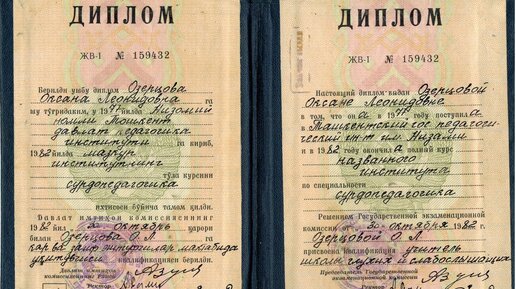 ДИПЛОМ
ЖВ-I № 159432
Берилди ушбу диплом Озерцова
Оксана Леонидовна га
шу тўғридаким, у 1977 йилда Низомий
номли Тошкент
давлат педагогика
институти га кириб,
1982 йилда мазкур
институтнинг
тўла курсини
сурдопедагогика
ихтисоси бўйича тамом қилди.
Давлат имтиҳон комиссиясининг
1982 йил 30 октябрь қарори
билан Озерцова О Л
кар ва заиф эшитувчилар мактабида
ўқитувчиси квалификацияси берилди.
Давлат имтиҳон
комиссиясининг Раиси
Ректор
ДИПЛОМ
ЖВ-I № 159432
Настоящий диплом выдан Озерцовой
Оксане Леонидовне
в том, что она в 1977 году поступила
в Ташкентский гос педагоги-
ческий ин-т им Низами
и в 1982 году окончила полный курс
названного
института
по специальности
сурдопедагогика
Решением Государственной экзаменационной
комиссии от 30 октября 1982 г.
Озерцовой О Л
присвоена квалификация учитель
школы глухих и слабослышащих
Председатель Государственной
экзаменационной комиссии
Ректор